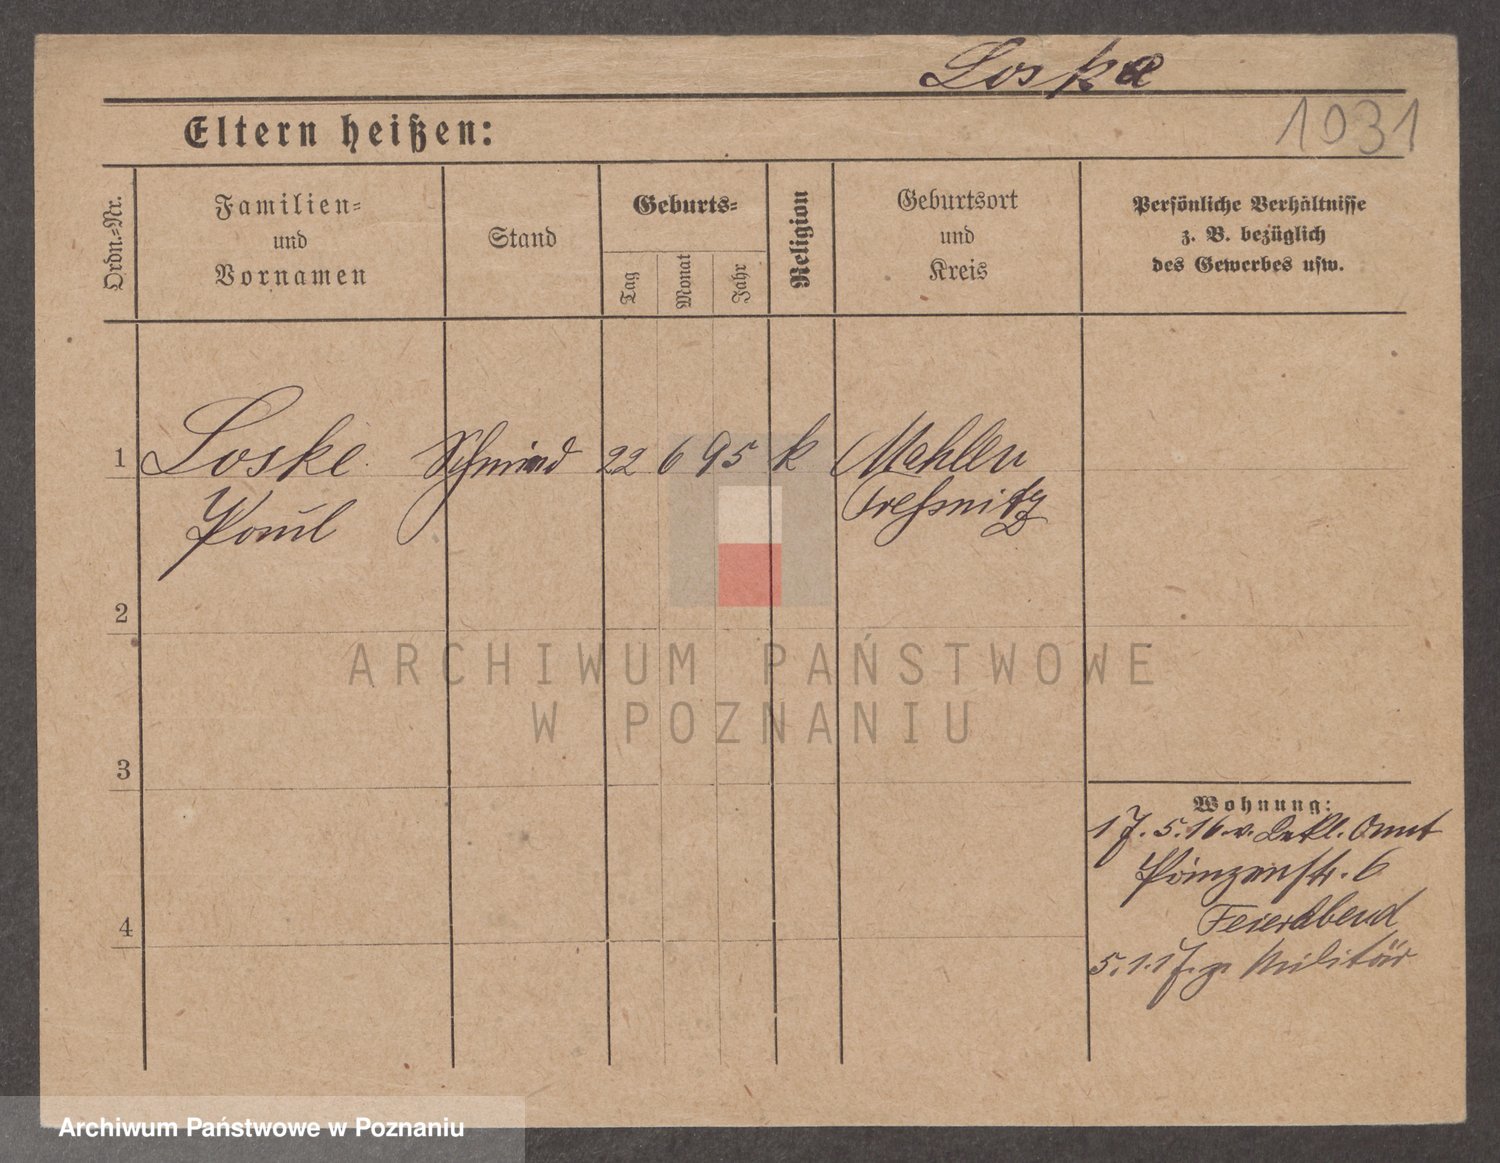 Loske
1031
Eltern heißen:
Ordn.-Nr.
Familien-
und
Vornamen
Stand
Geburts-
Tag
Monat
Jahr
Religion
Geburtsort
und
Kreis
Persönliche Verhältnisse
z. B. bezüglich
des Gewerbes usw.
1 Loske Schmied 22 6 95 k Mahlen
Paul Trebnitz
2
ARCHIWUM PAŃSTWOWE
W POZNANIU
3
Wohnung:
17.5.16 v.
Prinzenstr. 6
Feierabend
4
5.1.17 z. Militär
Archiwum Państwowe w Poznaniu